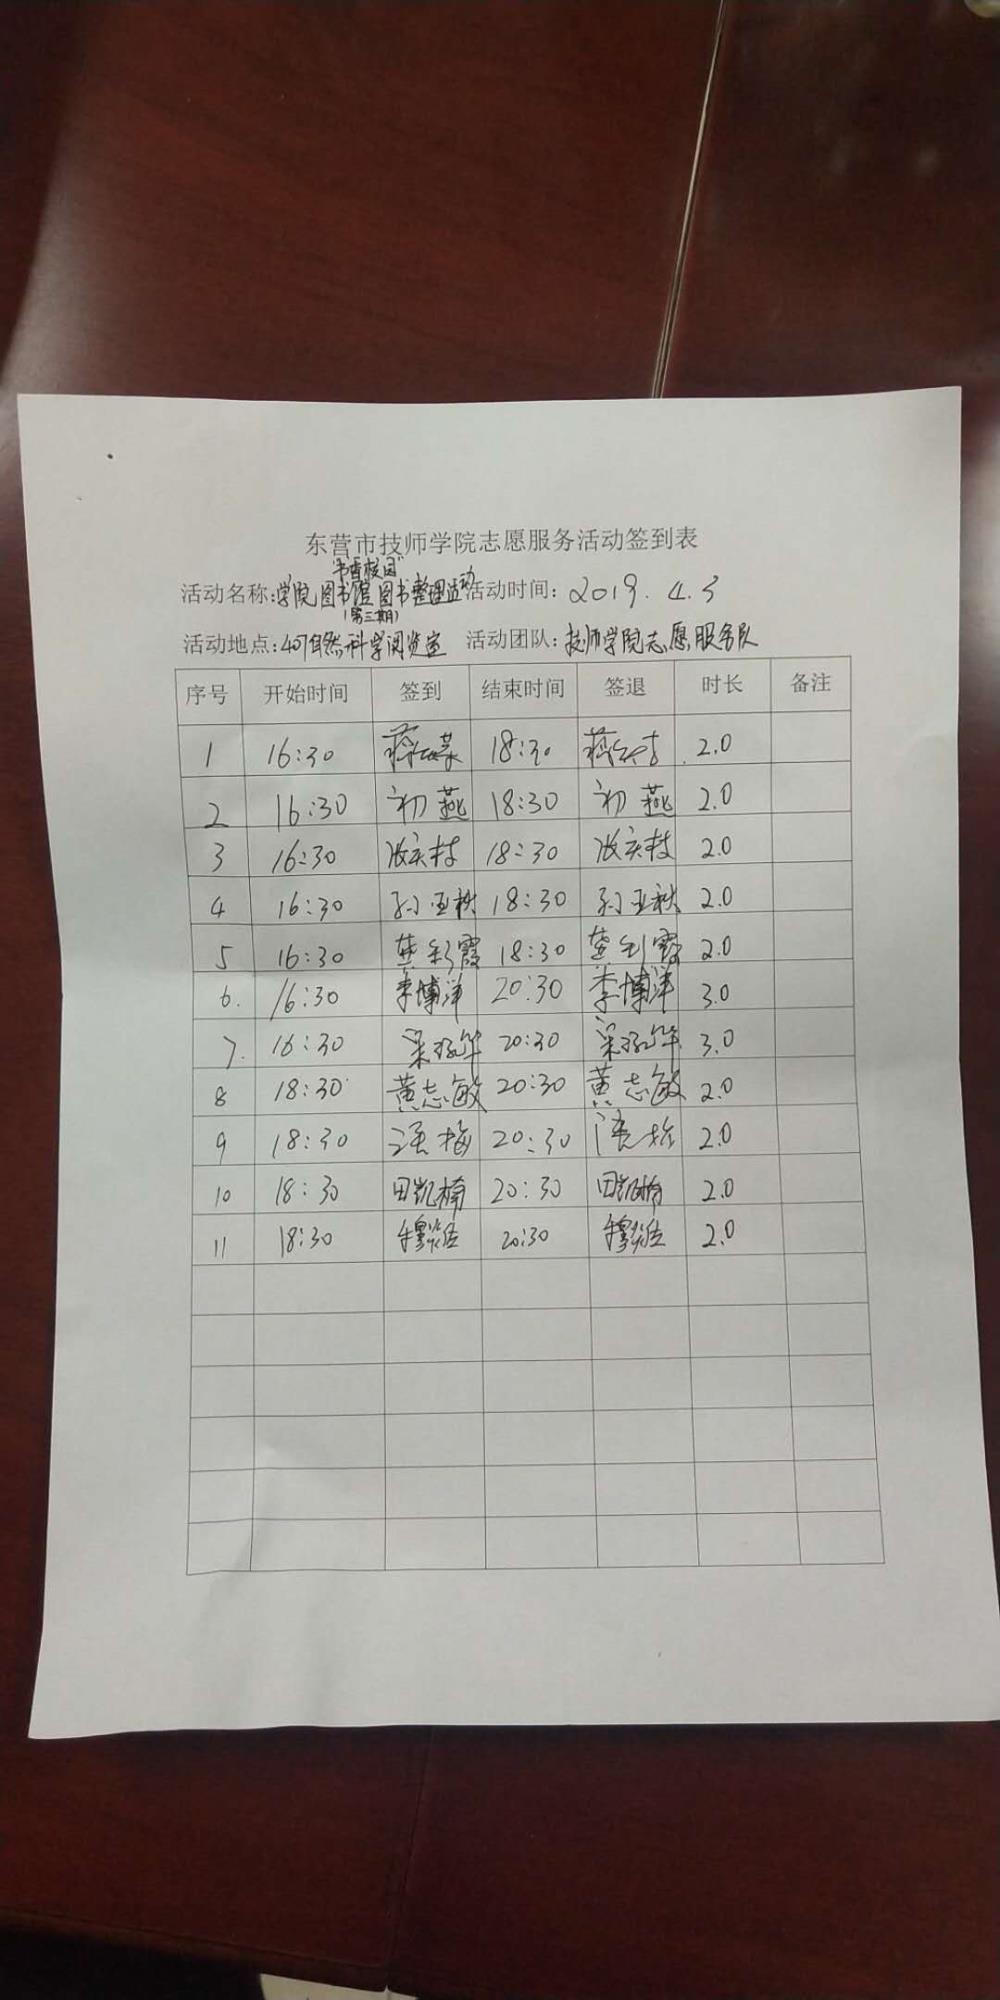 东营市技师学院志愿服务活动签到表
"书香校园"
活动名称:学院图书馆图书整理活动 活动时间: 2019.4.3
(第三期)
活动地点:407自然科学阅览室 活动团队:技师学院志愿服务队
序号 开始时间 签到 结束时间 签退 时长 备注
1 16:30 18:30 2.0
2 16:30 初燕 18:30 初燕 2.0
3 16:30 18:30 2.0
4 16:30 孙亚秋 18:30 孙亚秋 2.0
5 16:30 18:30 2.0
6. 16:30 李博洋 20:30 李博洋 3.0
7. 16:30 20:30 3.0
8 18:30 黄志敏 20:30 黄志敏 2.0
9 18:30 20:30 2.0
10 18:30 田凯楠 20:30 田凯楠 2.0
11 18:30 20:30 2.0